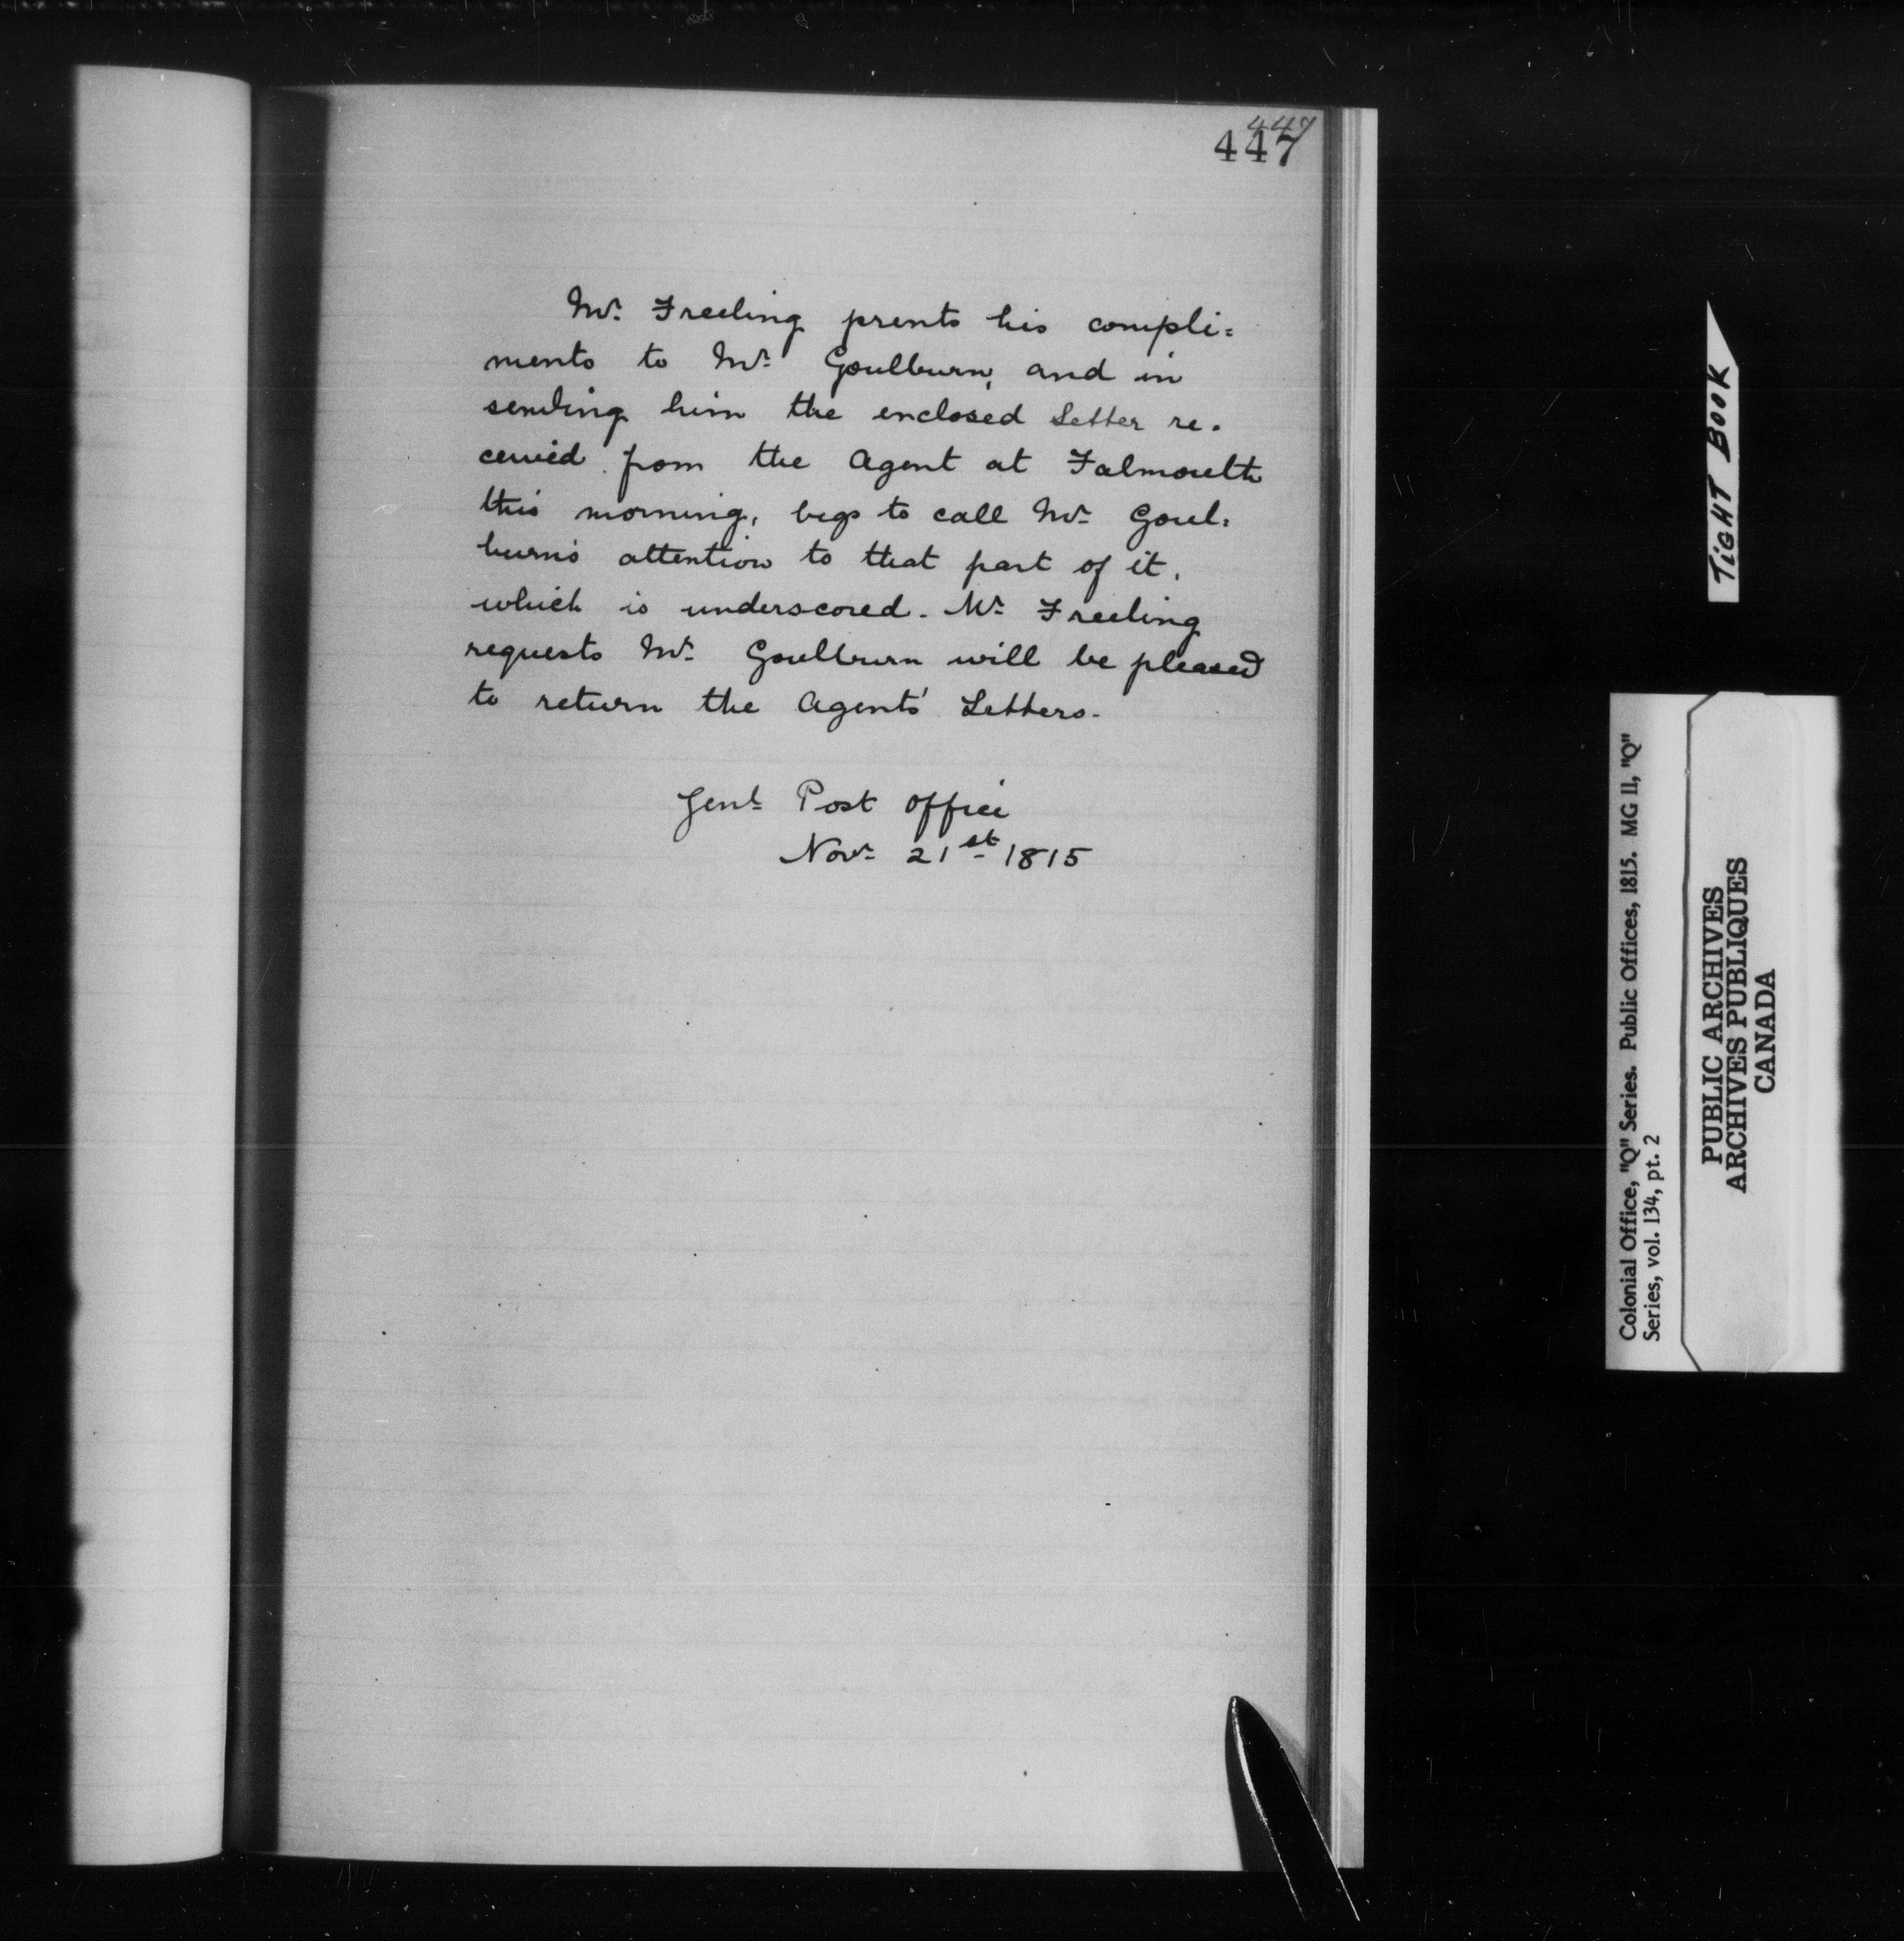 447
447
Mr. Freeling prents his compli=
ments to Mr. Goulburn, and in
sending him the enclosed Letter re.
ceived from the Agent at Falmouth
this morning, begs to call Mr. Goul=
burn's attention to that part of it,
which is underscored. Mr. Freeling
requests Mr. Goulburn will be pleased
to return the Agents' Letters.
Genl. Post Office
Novr. 21st 1815
TiGHT BOOK
Colonial Office, "Q" Series. Public Offices, 1815. MG 11, "Q"
Series, vol. 134, pt. 2
PUBLIC ARCHIVES
ARCHIVES PUBLIQUES
CANADA